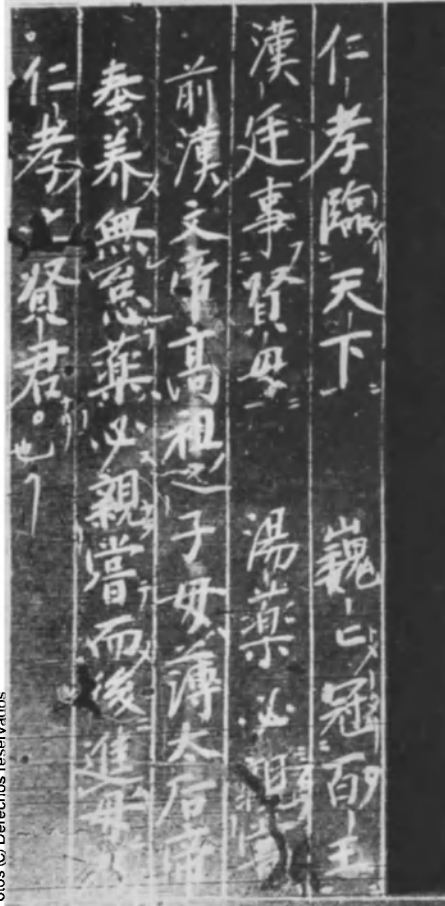 仁孝臨天下 巍々冠百王
漢廷事賢母 湯藥必親嘗
前漢文帝高祖之子母薄太后帝
奉养無怠藥必親嘗而後進母
仁孝之賢君也
otos (C) Derechos reservados